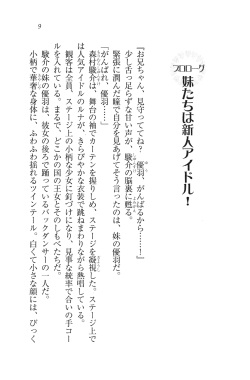 9
プロローグ
妹たちは新人アイドル！
『お兄ちゃん、見守っててね？　優羽、がんばるから……』
少し舌っ足らずな甘い声が、駿介の脳裏に甦る。
緊張に潤んだ瞳で自分を見あげてそう言ったのは、妹の優羽だ。
「がんばれ、優羽……」
森村駿介は、舞台の袖でカーテンを握りしめ、ステージを凝視した。ステージ上で
は人気アイドルのルナが、きらびやかな衣装で跳ねまわりながら熱唱している。
観客は全員、ステージ上の小柄な少女に釘づけになり、見事な統率で合いの手コー
ルを入れている。まるで、どこかの国の王女とそのしもべたちだ。
駿介の妹の優羽は、彼女の後ろで踊っているバックダンサーの一人だ。
小柄で華奢な身体に、ふわふわ揺れるツインテール。白くて小さな顔には、ぱっく